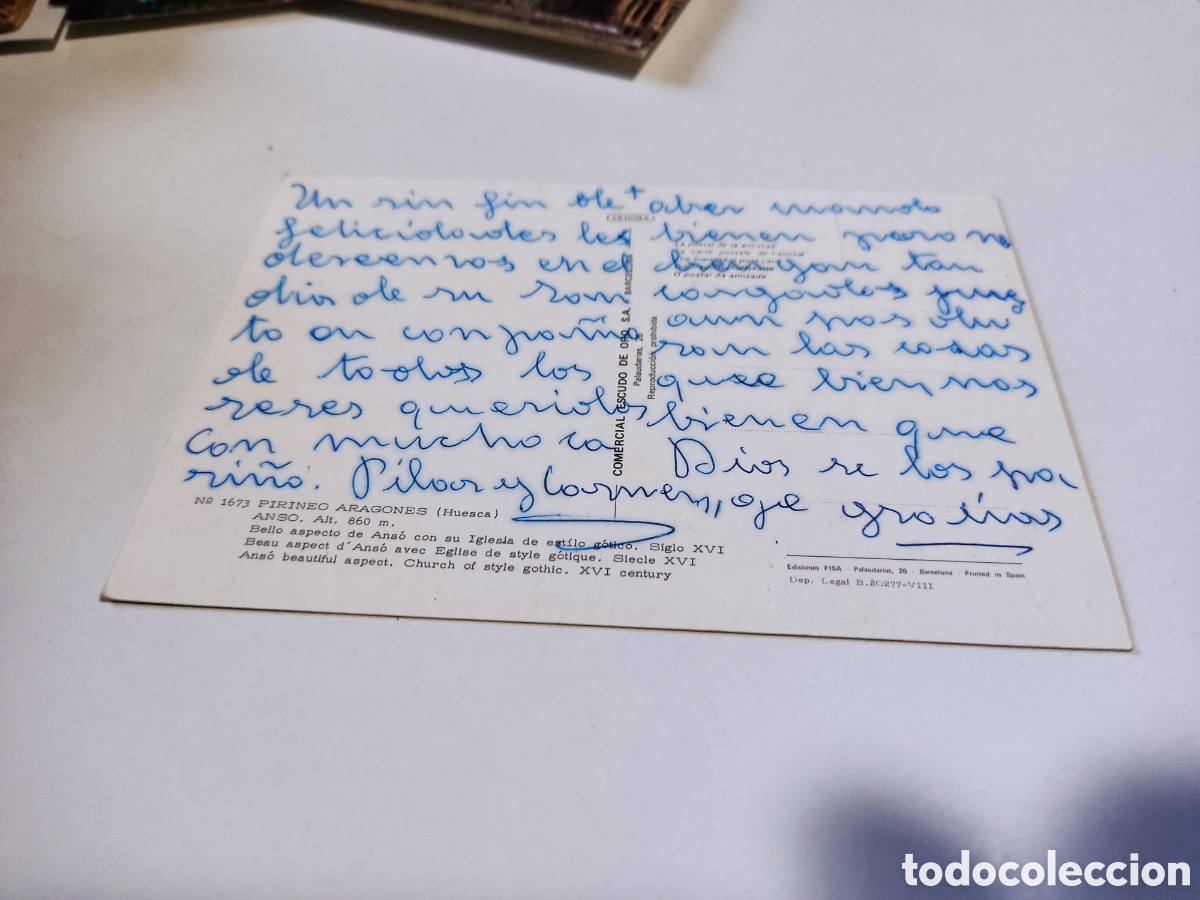 Un sin fin de +
felicidades les
deseamos en el
dia de su San
to en conpañia
de todos los
seres queridos
con mucho ca
riño. Pilar y Carmen,
aber cuando
bienen para
bengan tan
cargados
aun nos
las cosas
que bien nos
bienen que
Dios se los pa
ge gracias
COMERCIAL ESCUDO DE ORO, S.A. BARCELONA
Palaudarias, 26
Reproducción prohibida
La postal de la amistad
La carte postale de l'amitié
O postal da amizade
Nº 1673 PIRINEO ARAGONES (Huesca)
ANSO. Alt. 860 m.
Bello aspecto de Ansó con su Iglesia de estílo gótico. Siglo XVI
Beau aspect d'Ansó avec Eglise de style gótique. Siecle XVI
Ansó beautiful aspect. Church of style gothic. XVI century
Ediciones FISA - Palaudarias, 26 - Barcelona - Printed in Spain
Dep. Legal B.20277-VIII
todocoleccion